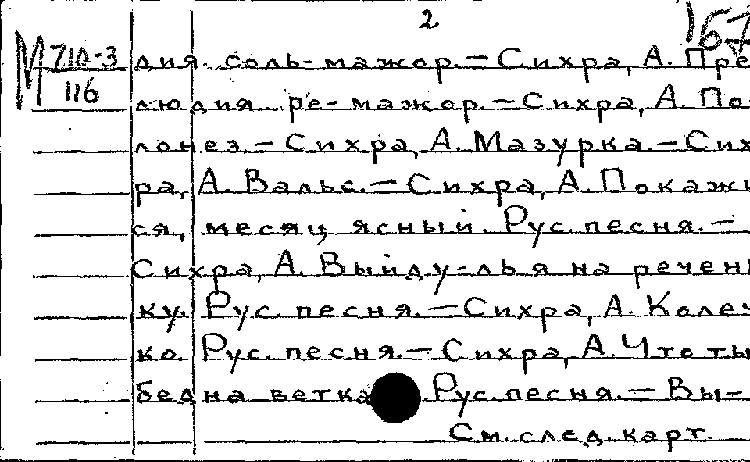 2
167
М 710-3
116
дия соль-мажор. — Сихра, А. Пре-
людия ре-мажор. — Сихра, А. По-
лонез. — Сихра, А. Мазурка. — Сих-
ра, А. Вальс. — Сихра, А. Покажи-
ся, месяц ясный. Рус. песня. —
Сихра, А. Выйду-ль я на речень-
ку. Рус. песня. — Сихра, А. Колеч-
ко. Рус. песня. — Сихра, А. Что ты
бедна ветка. Рус. песня. — Вы-
См. след. карт.